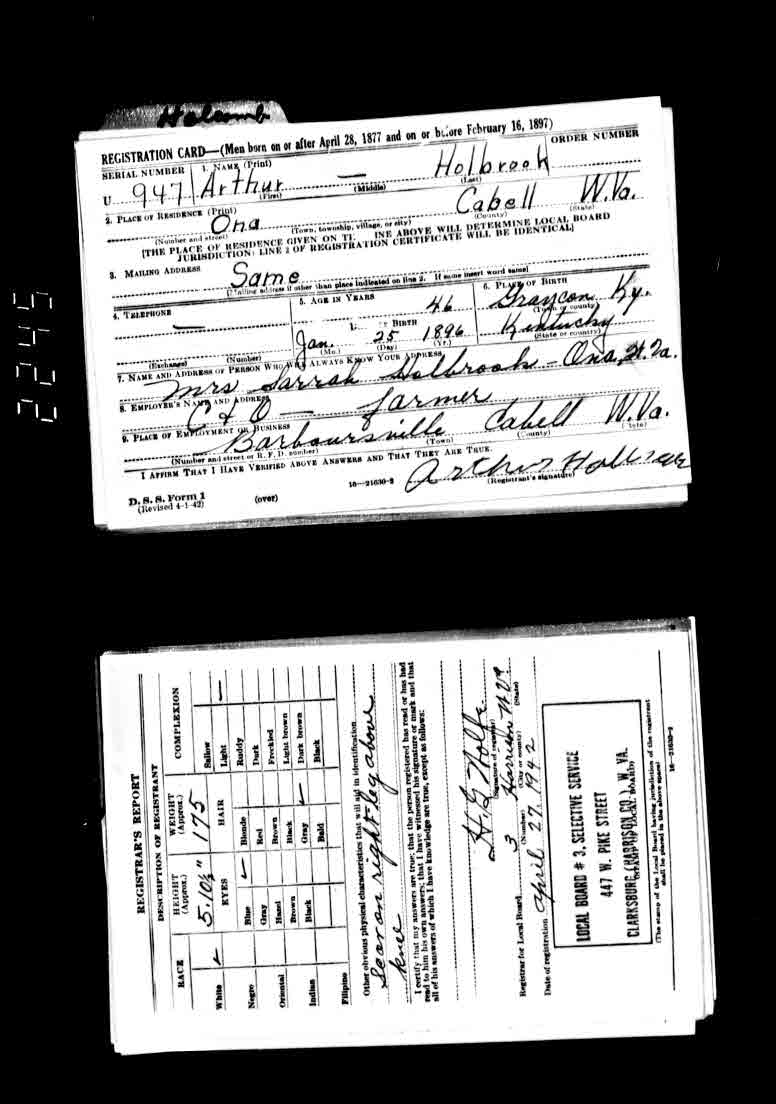 Holcomb
REGISTRATION CARD—(Men born on or after April 28, 1877 and on or before February 16, 1897)
SERIAL NUMBER 1. NAME (Print) ORDER NUMBER
U 947 Arthur — Holbrook
(First) (Middle) (Last)
2. PLACE OF RESIDENCE (Print)
Ona Cabell W.Va.
(Number and street) (Town, township, village, or city) (County) (State)
[THE PLACE OF RESIDENCE GIVEN ON INE ABOVE WILL DETERMINE LOCAL BOARD
JURISDICTION; LINE 2 OF REGISTRATION CERTIFICATE WILL BE IDENTICAL]
3. MAILING ADDRESS
Same
[Mailing address if other than place indicated on line 2. If same insert word same]
4. TELEPHONE 5. AGE IN YEARS 6. PLACE OF BIRTH
— 46 Graycon Ky.
BIRTH (Town or county)
Jan. 25 1896 Kentucky
(Exchange) (Number) (Mo.) (Day) (Yr.) (State or country)
7. NAME AND ADDRESS OF PERSON WHO WILL ALWAYS KNOW YOUR ADDRESS
Mrs Sarrah Holbrook - Ona, W.Va.
8. EMPLOYER'S NAME AND ADDRESS
C & O — farmer
9. PLACE OF EMPLOYMENT OR BUSINESS
Barboursville Cabell W.Va.
(Number and street or R. F. D. number) (Town) (County) (State)
I AFFIRM THAT I HAVE VERIFIED ABOVE ANSWERS AND THAT THEY ARE TRUE.
Arthur Holbrook
D. S. S. Form 1 (over) 16—21630-2 (Registrant's signature)
(Revised 4-1-42)
2245
REGISTRAR'S REPORT
DESCRIPTION OF REGISTRANT
RACE HEIGHT (Approx.) WEIGHT (Approx.) COMPLEXION
5.10½" 175
White ✓ EYES HAIR Sallow
Light ✓
Negro Blue ✓ Blonde Ruddy
Gray Red Dark
Oriental Hazel Brown Freckled
Brown Black Light brown
Indian Black Gray ✓ Dark brown
Bald Black
Filipino
Other obvious physical characteristics that will aid in identification
Scar on right leg above
knee
I certify that my answers are true; that the person registered has read or has had
read to him his own answers; that I have witnessed his signature or mark and that
all of his answers of which I have knowledge are true, except as follows:
H. G. Wolfe
(Signature of registrar)
Registrar for Local Board 3 Harrison W.Va
(Number) (City or county) (State)
Date of registration April 27, 1942
LOCAL BOARD # 3, SELECTIVE SERVICE
447 W. PIKE STREET
CLARKSBURG (HARRISON CO.), W. VA.
(The stamp of the Local Board having jurisdiction of the registrant
shall be placed in the above space)
16—21630-2